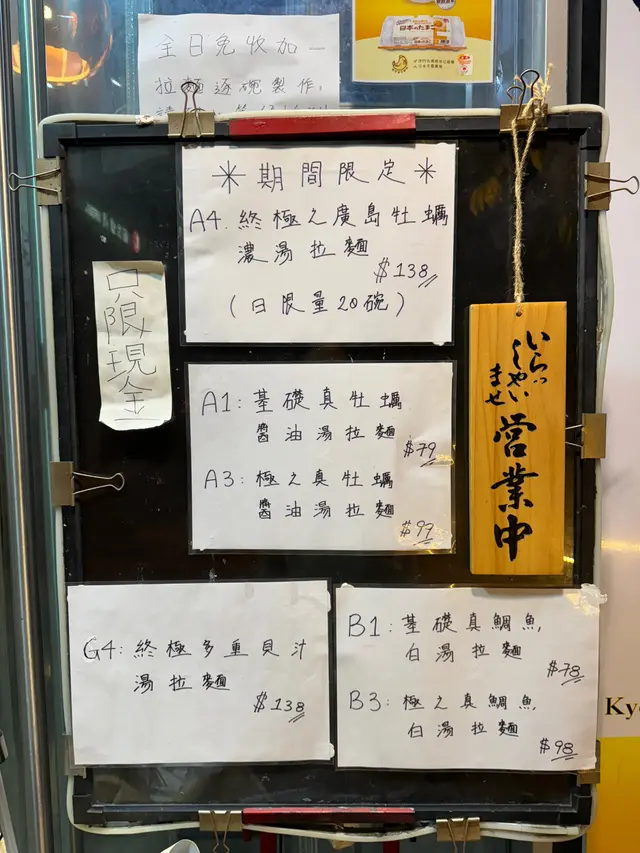 全日免收加一
拉麵逐碗製作,
日本のたまご
＊期間限定＊
A4. 終極之廣島牡蠣
濃湯拉麵
$138
(日限量20碗)
只限現金
A1: 基礎真牡蠣
醬油湯拉麵
$79
A3: 極之真牡蠣
醬油湯拉麵
$99
いらっ
しゃい
ませ
営業中
G4: 終極多重貝汁
湯拉麵
$138
B1: 基礎真鯛魚,
白湯拉麵
$78
B3: 極之真鯛魚,
白湯拉麵
$98
Ky